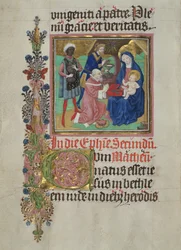 unigeniti a patre. Ple
nū gracie et veritatis.
In die Ephie Secundū
Cum Matheū
natus esset ie
sus in bethle
em iude in dieb herodis